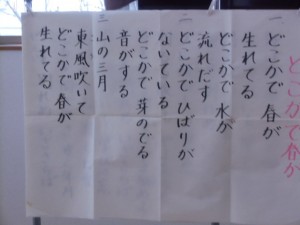 どこかで春が
一 どこかで 春が
生れてる
どこかで 水が
流れだす
二 どこかで ひばりが
ないている
どこかで 芽のでる
音がする
三 山の三月
東風吹いて
どこかで 春が
生れてる